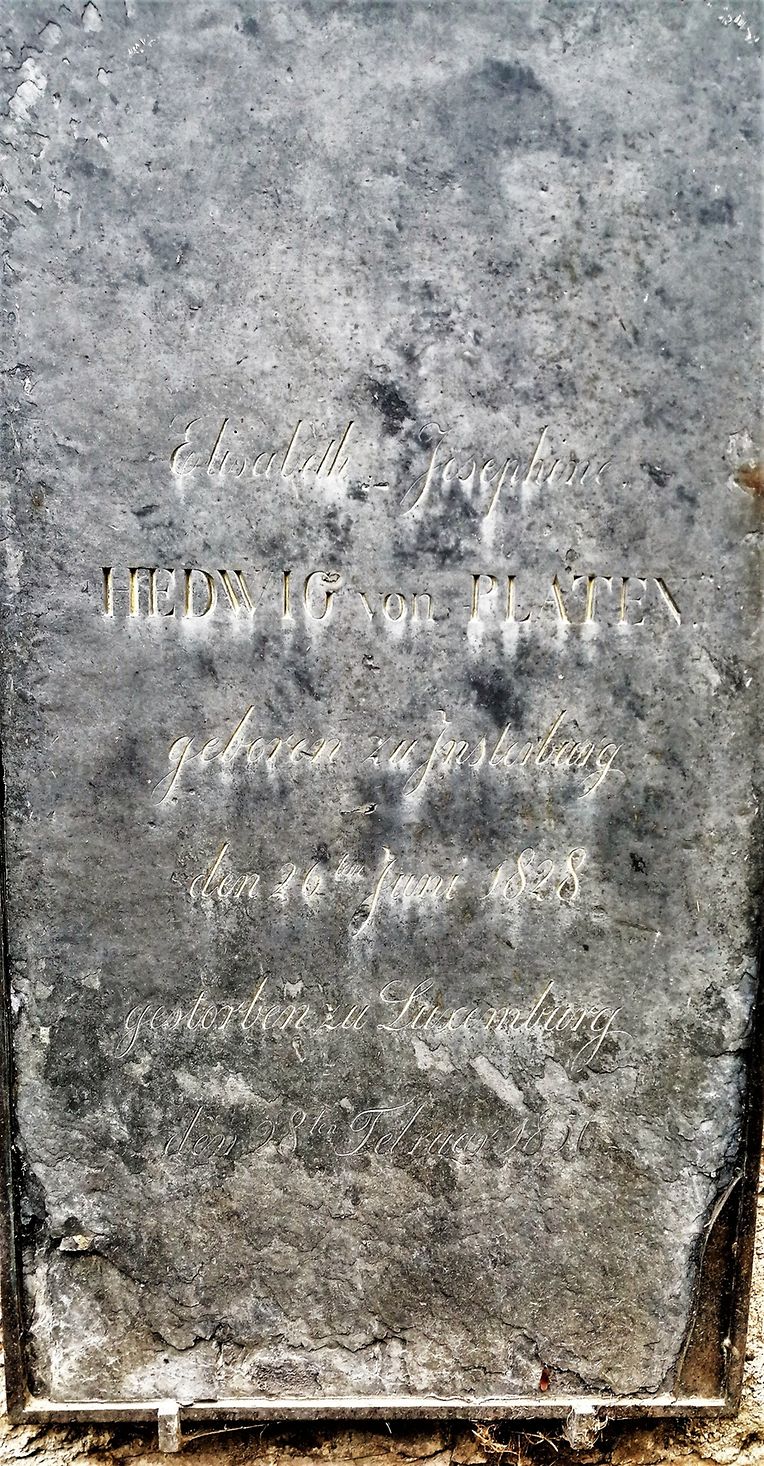 Elisabeth Josephine.
HEDWIG von PLATEN.
geboren zu Insterburg
den 26ten Juni 1828
gestorben zu Luxemburg
den 28ten Februar